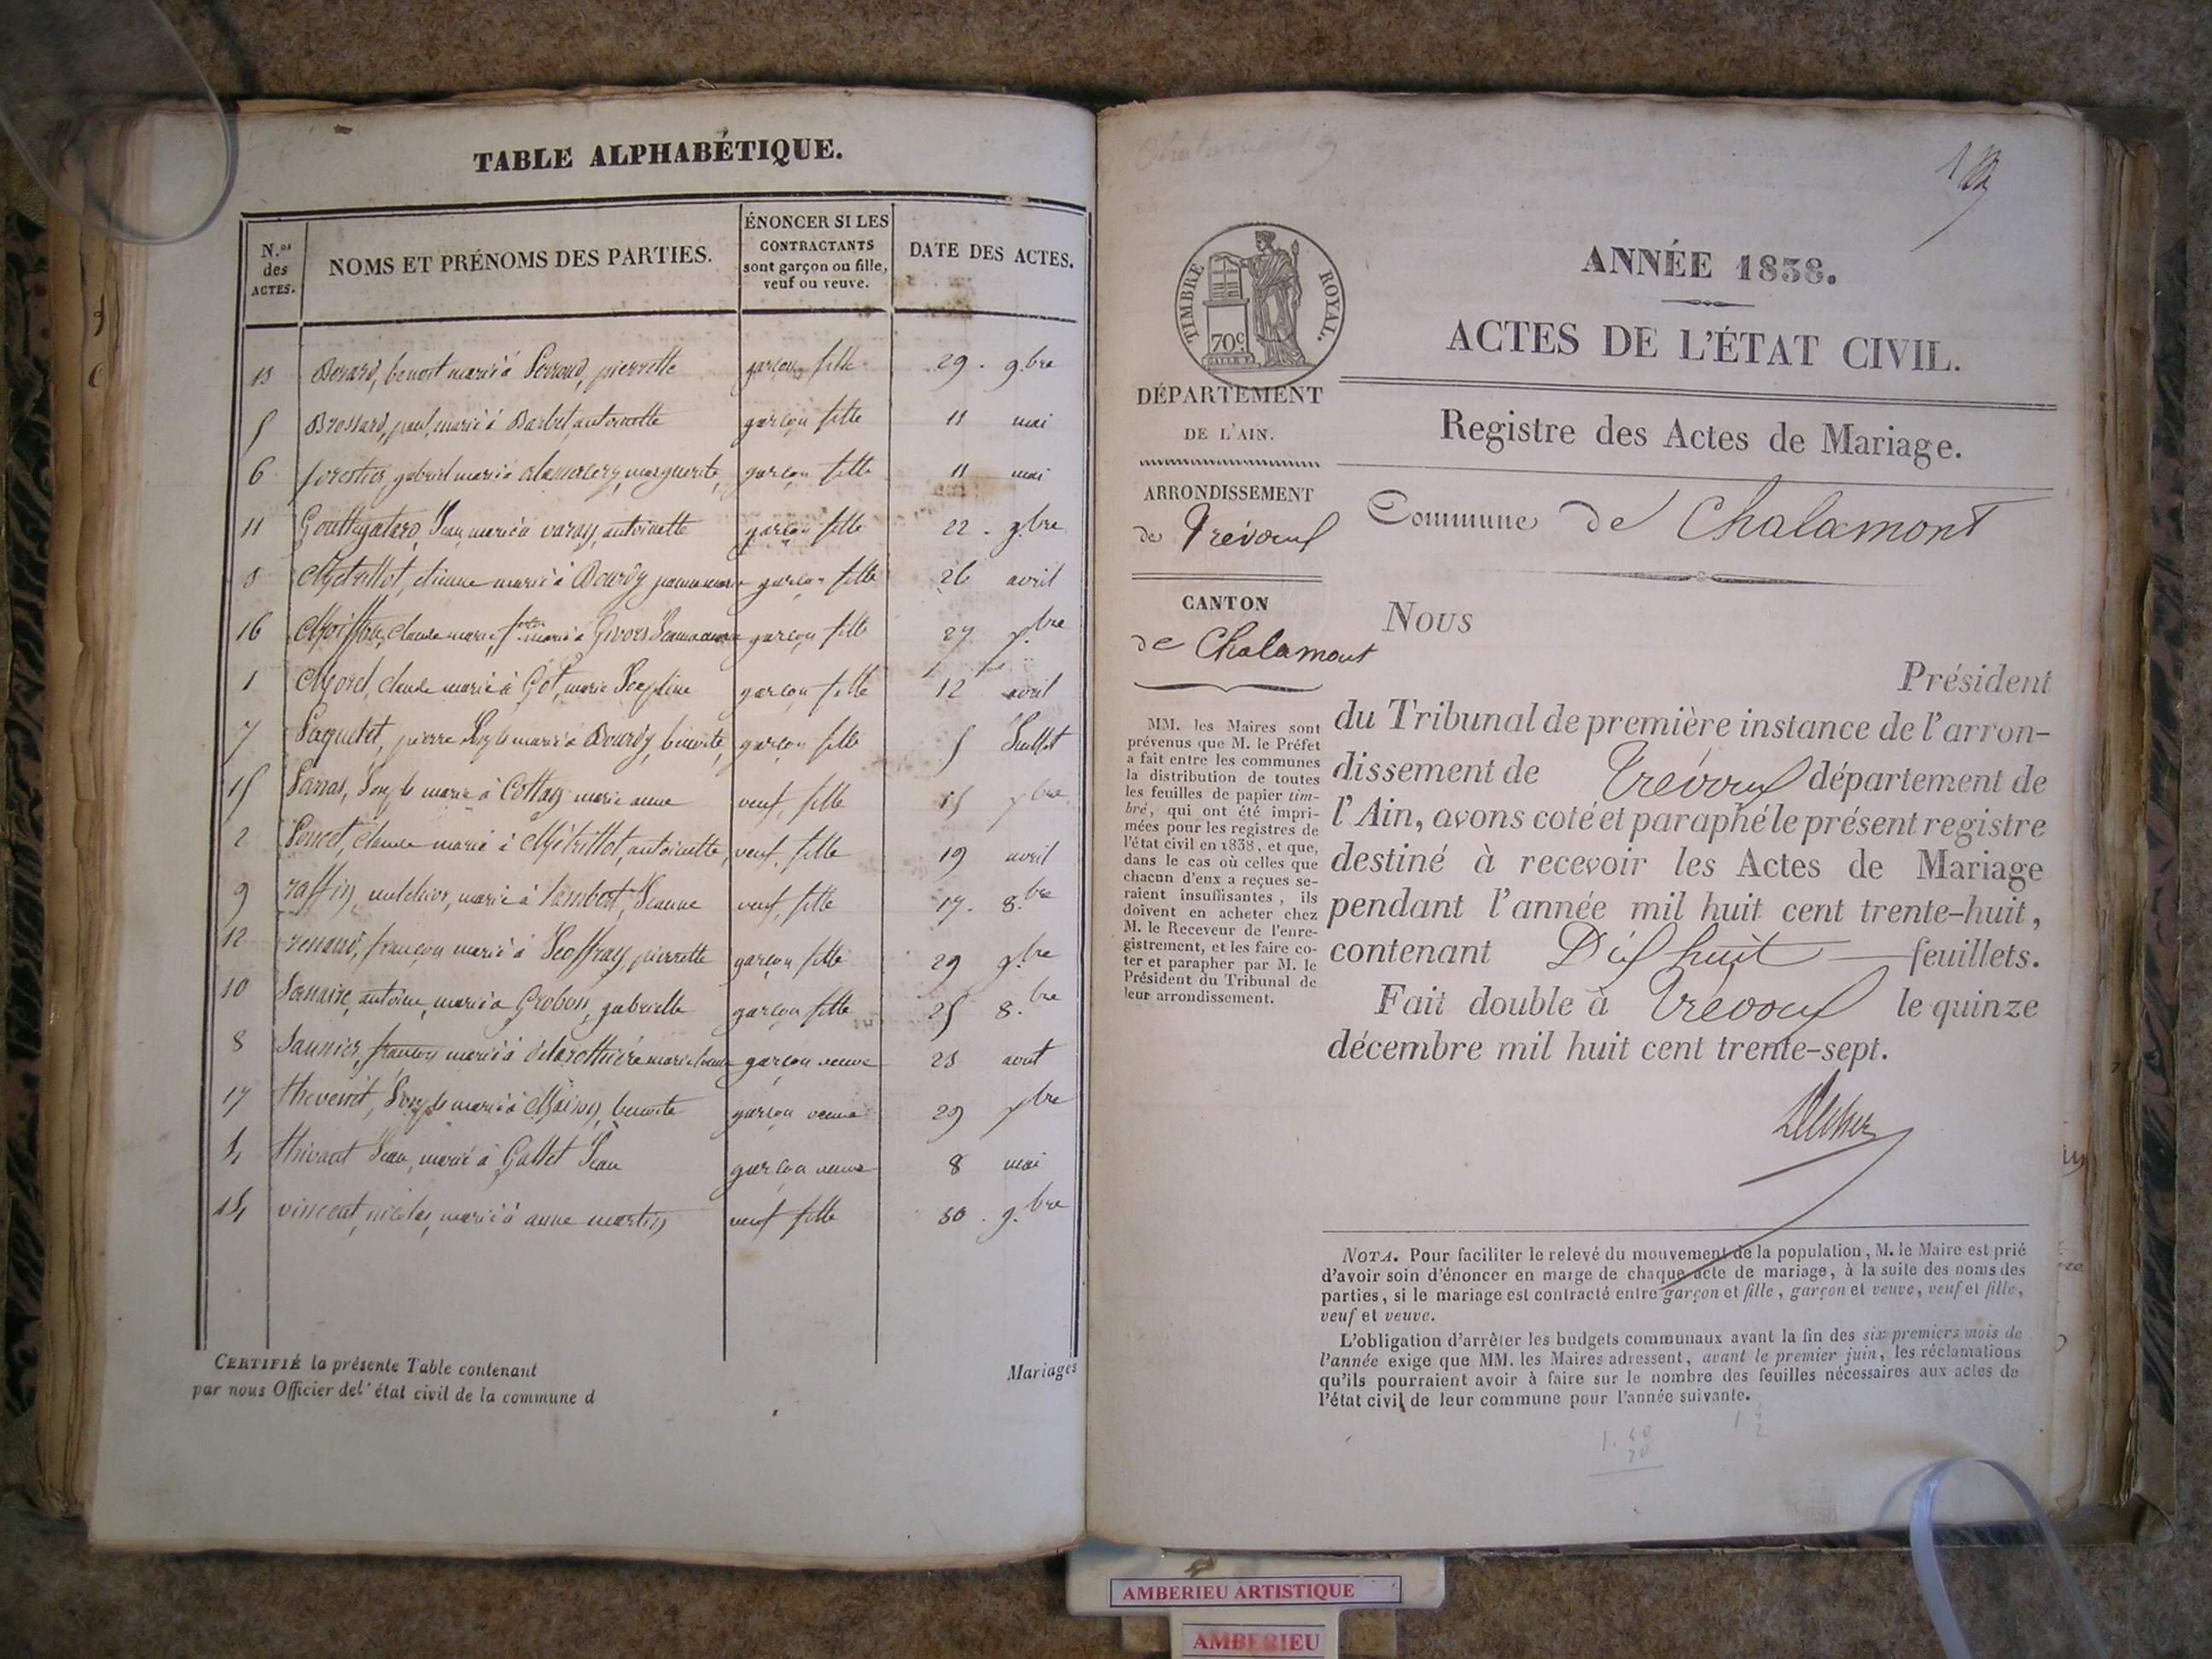 TABLE ALPHABÉTIQUE.
N.os des ACTES.
NOMS ET PRÉNOMS DES PARTIES.
ÉNONCER SI LES
CONTRACTANTS
sont garçon ou fille,
veuf ou veuve.
DATE DES ACTES.
13 benoit marié à pierrette garçon fille 29. 9.bre
5 Brossard, paul, marié à Barbet antoinette garçon fille 11 mai
6 forestier, gabriel marié à marguerite, garçon fille 11 mai
11 Jean, marié à varay, antoinette garçon fille 22. 9.bre
3 étienne marié à Bourdy garçon fille 26 avril
16 claude marie, marié à garçon fille 27
1 Morel, claude marié à Got, marie Josephine garçon fille 12 avril
7 Paquetet, pierre Joseph marié à Bourdy, benoite, garçon fille 5 Juillet
15 Joseph marié à Cottay marie anne veuf, fille 15
2 claude marié à Métrillot, antoinette, veuf, fille 19 avril
9 raffin, melchior, marié à Lambert, Jeanne veuf, fille 17. 8.bre
12 renaud, françois marié à Geoffray, pierrette garçon fille 29 9.bre
10 antoine, marié à Grobon, gabrielle garçon fille 25 8.bre
8 Saunier, françois marié à garçon veuve 23 aout
17 thevenet, Joseph marié à benoite garçon veuve 29
4 Jean, marié à Gallet Jean garçon veuve 8 mai
14 vincent, nicolas, marié à anne martin veuf fille 30. 9.bre
CERTIFIÉ la présente Table contenant Mariages
par nous Officier del' état civil de la commune d
TIMBRE ROYAL.
70c
ANNÉE 1838.
ACTES DE L'ÉTAT CIVIL.
Registre des Actes de Mariage.
Commune de Chalamont
DÉPARTEMENT
DE L'AIN.
ARRONDISSEMENT
de Trévoux
CANTON
de Chalamont
MM. les Maires sont
prévenus que M. le Préfet
a fait entre les communes
la distribution de toutes
les feuilles de papier tim-
bré, qui ont été impri-
mées pour les registres de
l'état civil en 1838, et que,
dans le cas où celles que
chacun d'eux a reçues se-
raient insuffisantes, ils
doivent en acheter chez
M. le Receveur de l'enre-
gistrement, et les faire co-
ter et parapher par M. le
Président du Tribunal de
leur arrondissement.
Nous
Président
du Tribunal de première instance de l'arron-
dissement de Trévoux département de
l'Ain, avons coté et paraphé le présent registre
destiné à recevoir les Actes de Mariage
pendant l'année mil huit cent trente-huit,
contenant Dix huit feuillets.
Fait double à Trévoux le quinze
décembre mil huit cent trente-sept.
NOTA. Pour faciliter le relevé du mouvement de la population, M. le Maire est prié
d'avoir soin d'énoncer en marge de chaque acte de mariage, à la suite des noms des
parties, si le mariage est contracté entre garçon et fille, garçon et veuve, veuf et fille,
veuf et veuve.
L'obligation d'arrêter les budgets communaux avant la fin des six premiers mois de
l'année exige que MM. les Maires adressent, avant le premier juin, les réclamations
qu'ils pourraient avoir à faire sur le nombre des feuilles nécessaires aux actes de
l'état civil de leur commune pour l'année suivante.
AMBERIEU ARTISTIQUE
AMBERIEU